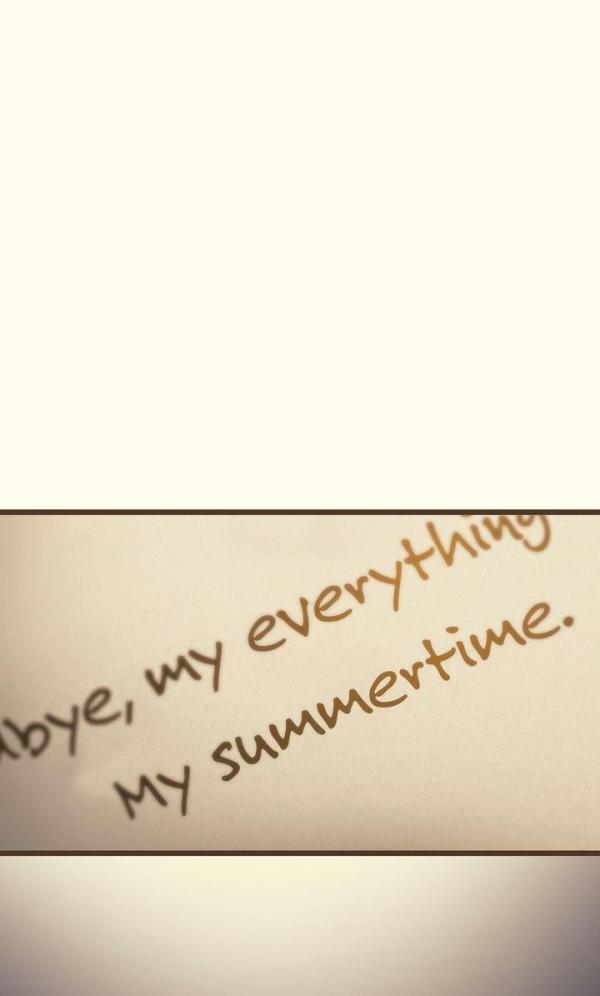 dbye, my everything
My summertime.